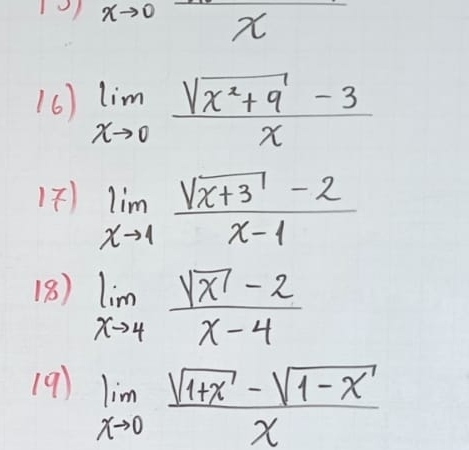 15) lim x→0 x
16) lim x→0 (√(x²+9) - 3)/x
17) lim x→1 (√(x+3) - 2)/(x-1)
18) lim x→4 (√x - 2)/(x-4)
19) lim x→0 (√(1+x) - √(1-x))/x